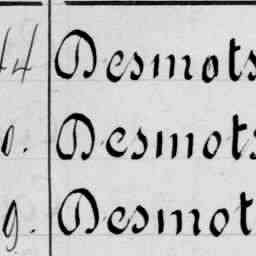 44 Desmots
0. Desmots
9. Desmot